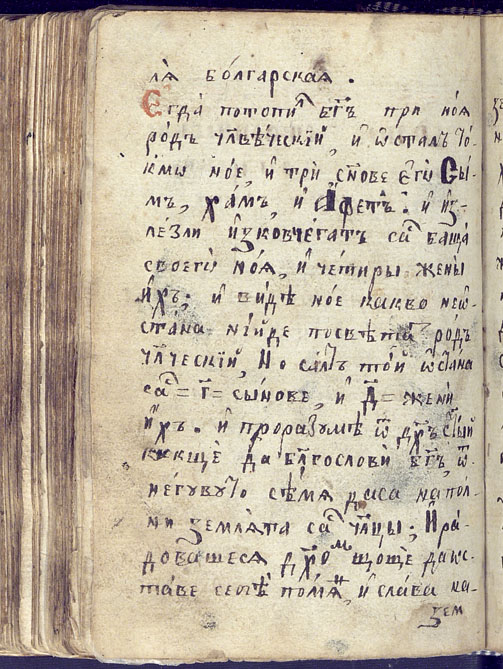 лѧ̀ бо́лгарскаѧ .
Егда̀ потопи̏ бг҃ъ при но́ѧ
ро́дъ чл҃вѣ́ческїй, и҆ ѡ҆ста́лъ то́-
кмѡ но́е, и҆ трѝ сн҃ове є҆гѡ̀ Сы́-
мъ, ха́мъ, и҆ А҆фе́тъ: и҆ и҆з-
ле́зли и҆зковче́гатъ са̏ баща̀
своегѡ̀ но́ѧ, и҆ че́тиры жены̀
и҆́хъ; и҆ ви́дѣ но́е какво неѡ-
стана ні́йде посвѣ́та ро́дъ
чл҃ческїй, Но са́мъ то́й ѡ҆ста́на
са̏ = г҃ = сы́нове, и҆ д҃ = жени́
и҆́хъ. и҆ проразꙋмѣ̀ ѿ дх҃ъ ст҃ый
какщѐ да бл҃гословѝ бг҃ъ, ѿ
неговꙋто сѣ́мѧ да са напол-
ни земла́та са̏ чл҃цы; И҆ ра́-
довашесѧ дх҃ом щощѐ да ѡс-
та́ве себѣ̀ по́мѧн, и҆ сла́ва на-
зем